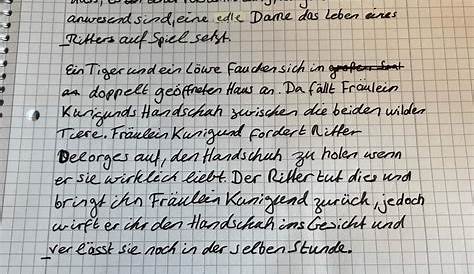 anwesend sind, eine edle Dame das Leben eines
Ritters auf Spiel setzt.
Ein Tiger und ein Löwe Fauchen sich in
doppelt geöffneten Haus an. Da fällt Fräulein
Kunigunds Handschah zwischen die beiden wilden
Tiere. Fräulein Kunigund fordert Ritter
Delorges auf, den Handschuh zu holen wenn
er sie wirklich liebt. Der Ritter tut dies und
bringt ihn Fräulein Kunigund zurück, jedoch
wirft er ihr den Handschah ins Gesicht und
verlässt sie noch in der selben Stunde.